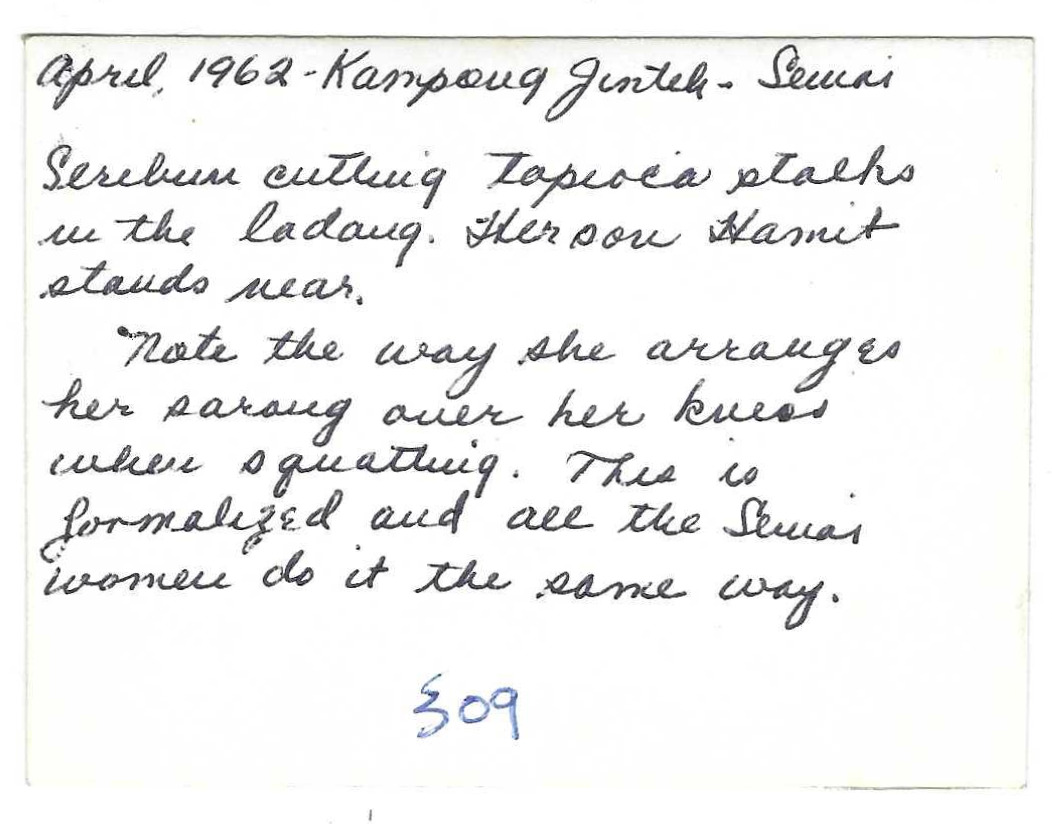 April, 1962 - Kampong Jinteh - Semai
Serebum cutting tapioca stalks
in the ladang. Her son Hamit
stands near.
Note the way she arranges
her sarong over her knees
when squatting. This is
formalized and all the Semai
women do it the same way.
309